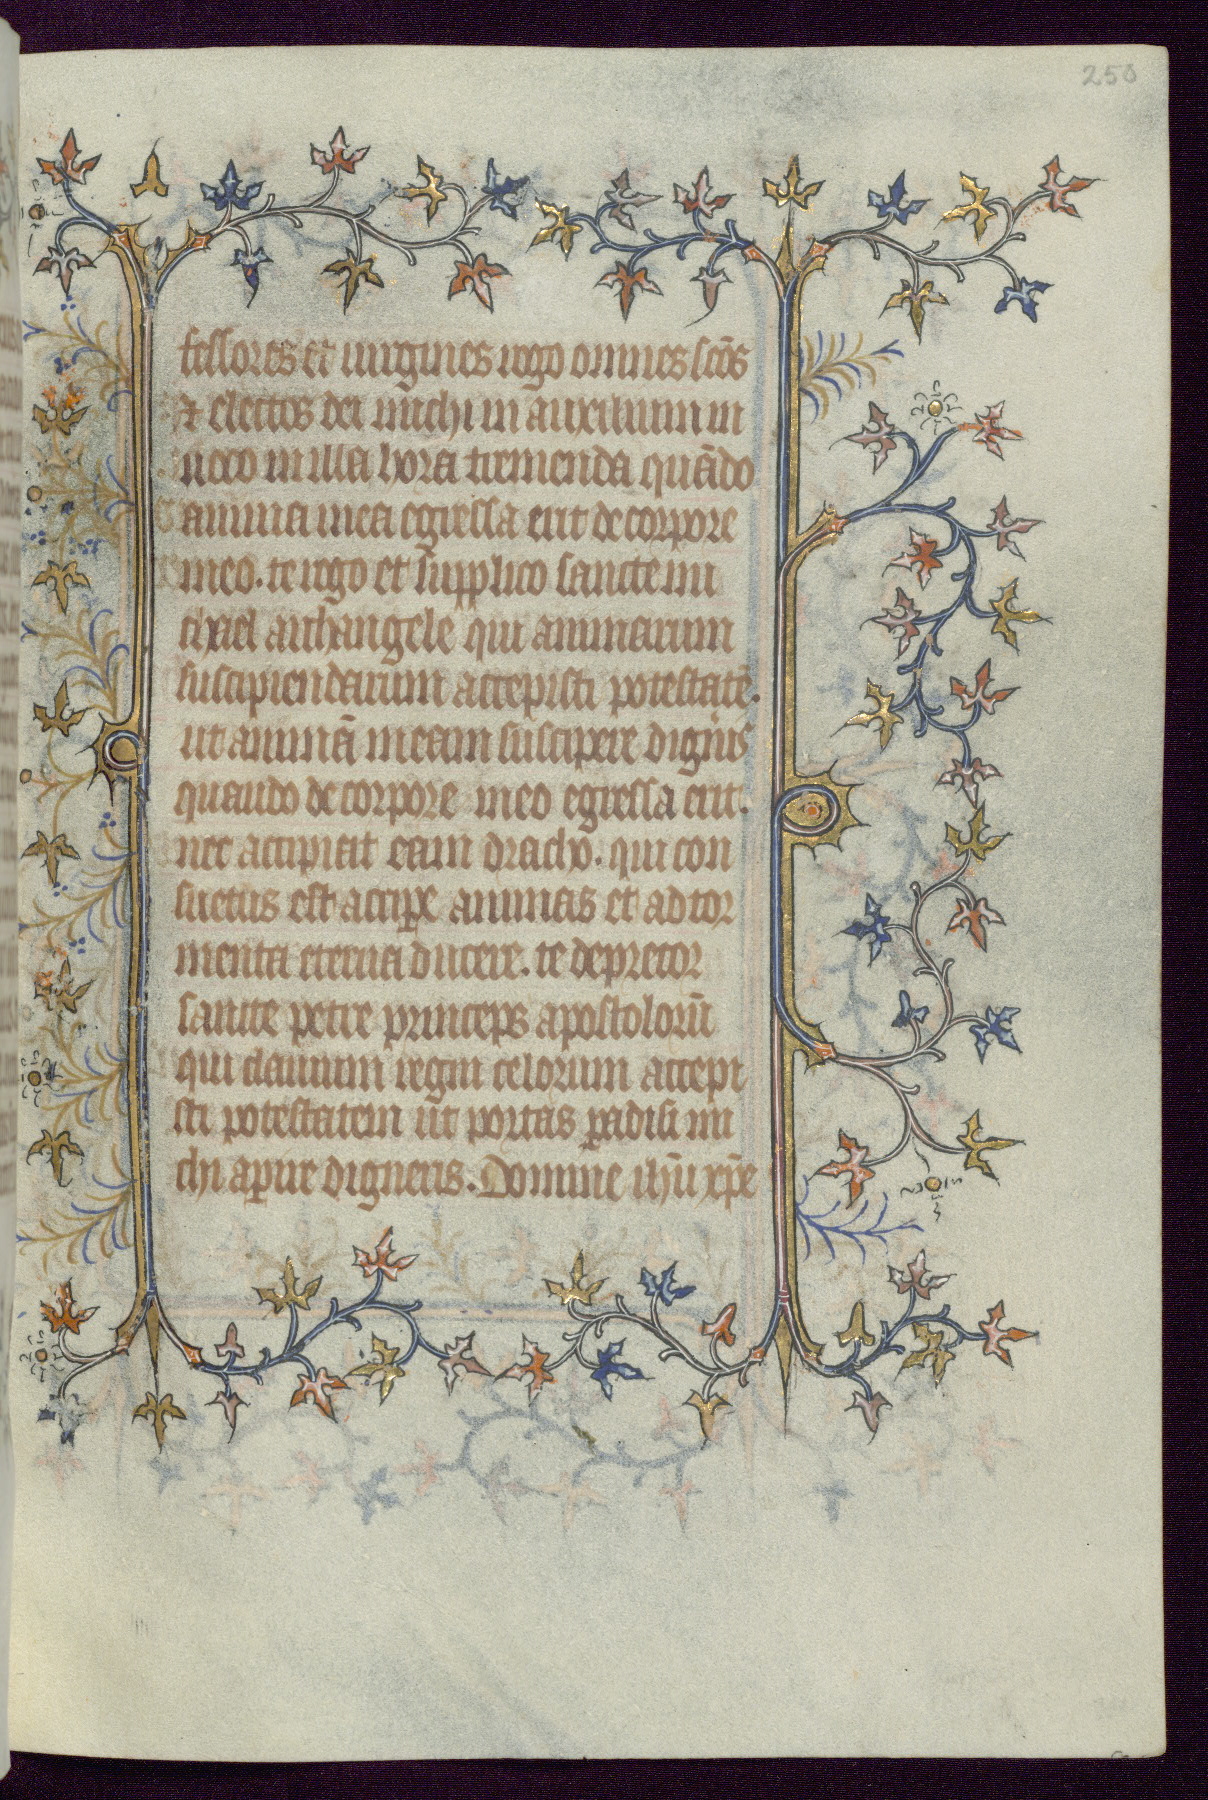 250
fessores et uirgines rogo omnes sc̃os
⁊ electos dei michi in auxilium in
uoco in illa hora tremenda quãdo
anima mea egressa erit de corpore
meo. te rogo et supplico sancte mi
chael archangele qui animarum
suscipiendarum accepisti potestatẽ.
ut animã meam suscipere digñis
quando de corpore meo egressa erit.
nec accipiat eam dracho. qui con
suetus est accipe animas et ad tor
menta eterna ducere. te deprecor
sancte petre princeps apostolorũ
qui clauium regni celorum accepi
sti potestatem ut portas p̱adisi mi
chi ap̱ire digneris. Domine ihũ xp̃e